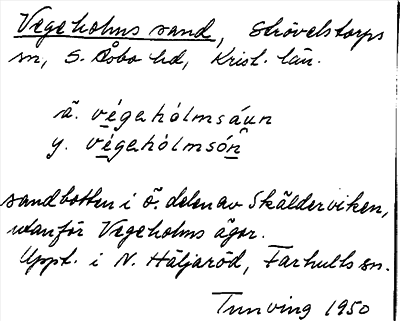 Vegeholms sand, Strövelstorps
sn, S. Åsbo hd, Krist. län.
ä. végahólmsáun
y. végahólmsón̂
sandbotten i ö. delen av Skälderviken,
utanför Vegeholms ägor.
Uppt. i N. Häljaröd, Farhults sn.
Tunving 1950